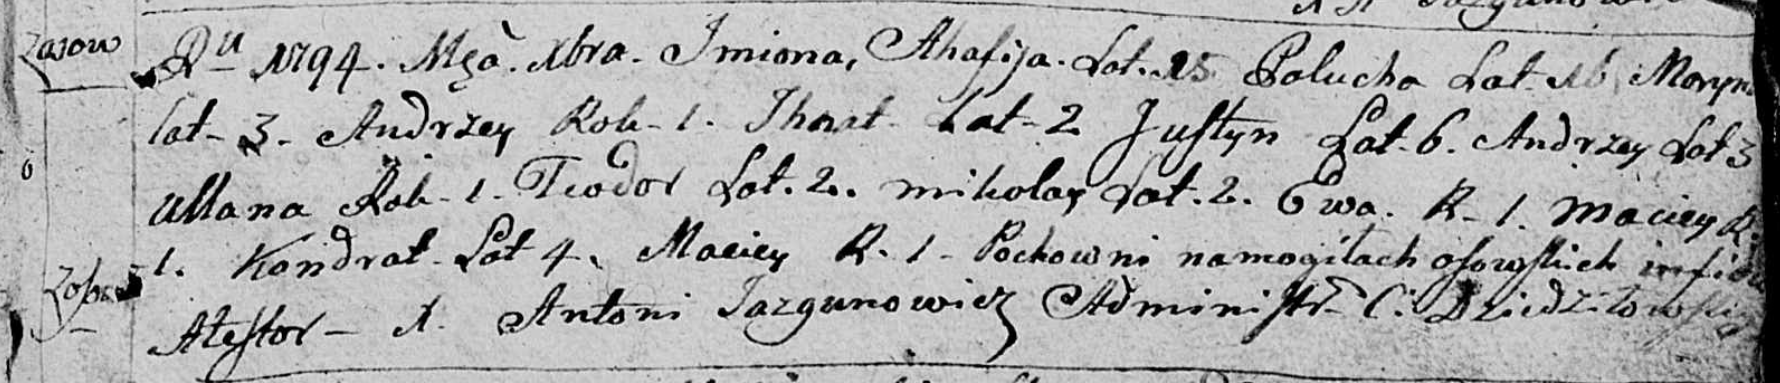 Zasow
Ru 1794. Mçà. Xbra. Imiona, Ahafija. Lat. 15 Palucha Lat. 16 Maryn
lat. 3. Andrzey Rok. 1. Ihnat Lat. 2 Justyn Lat. 6. Andrzey Lat 3
6
Ullana Rok. 1. Teodor Lat. 2. mikolay Lat. 2. Ewa. R. 1. Maciey R.
1. Kondrat Lat 4. Maciey R. 1. Pochowni na mogiłach osowskich in fidem
Atestor X. Antoni Jazgunowicz Administr. C. Dziedziłowski